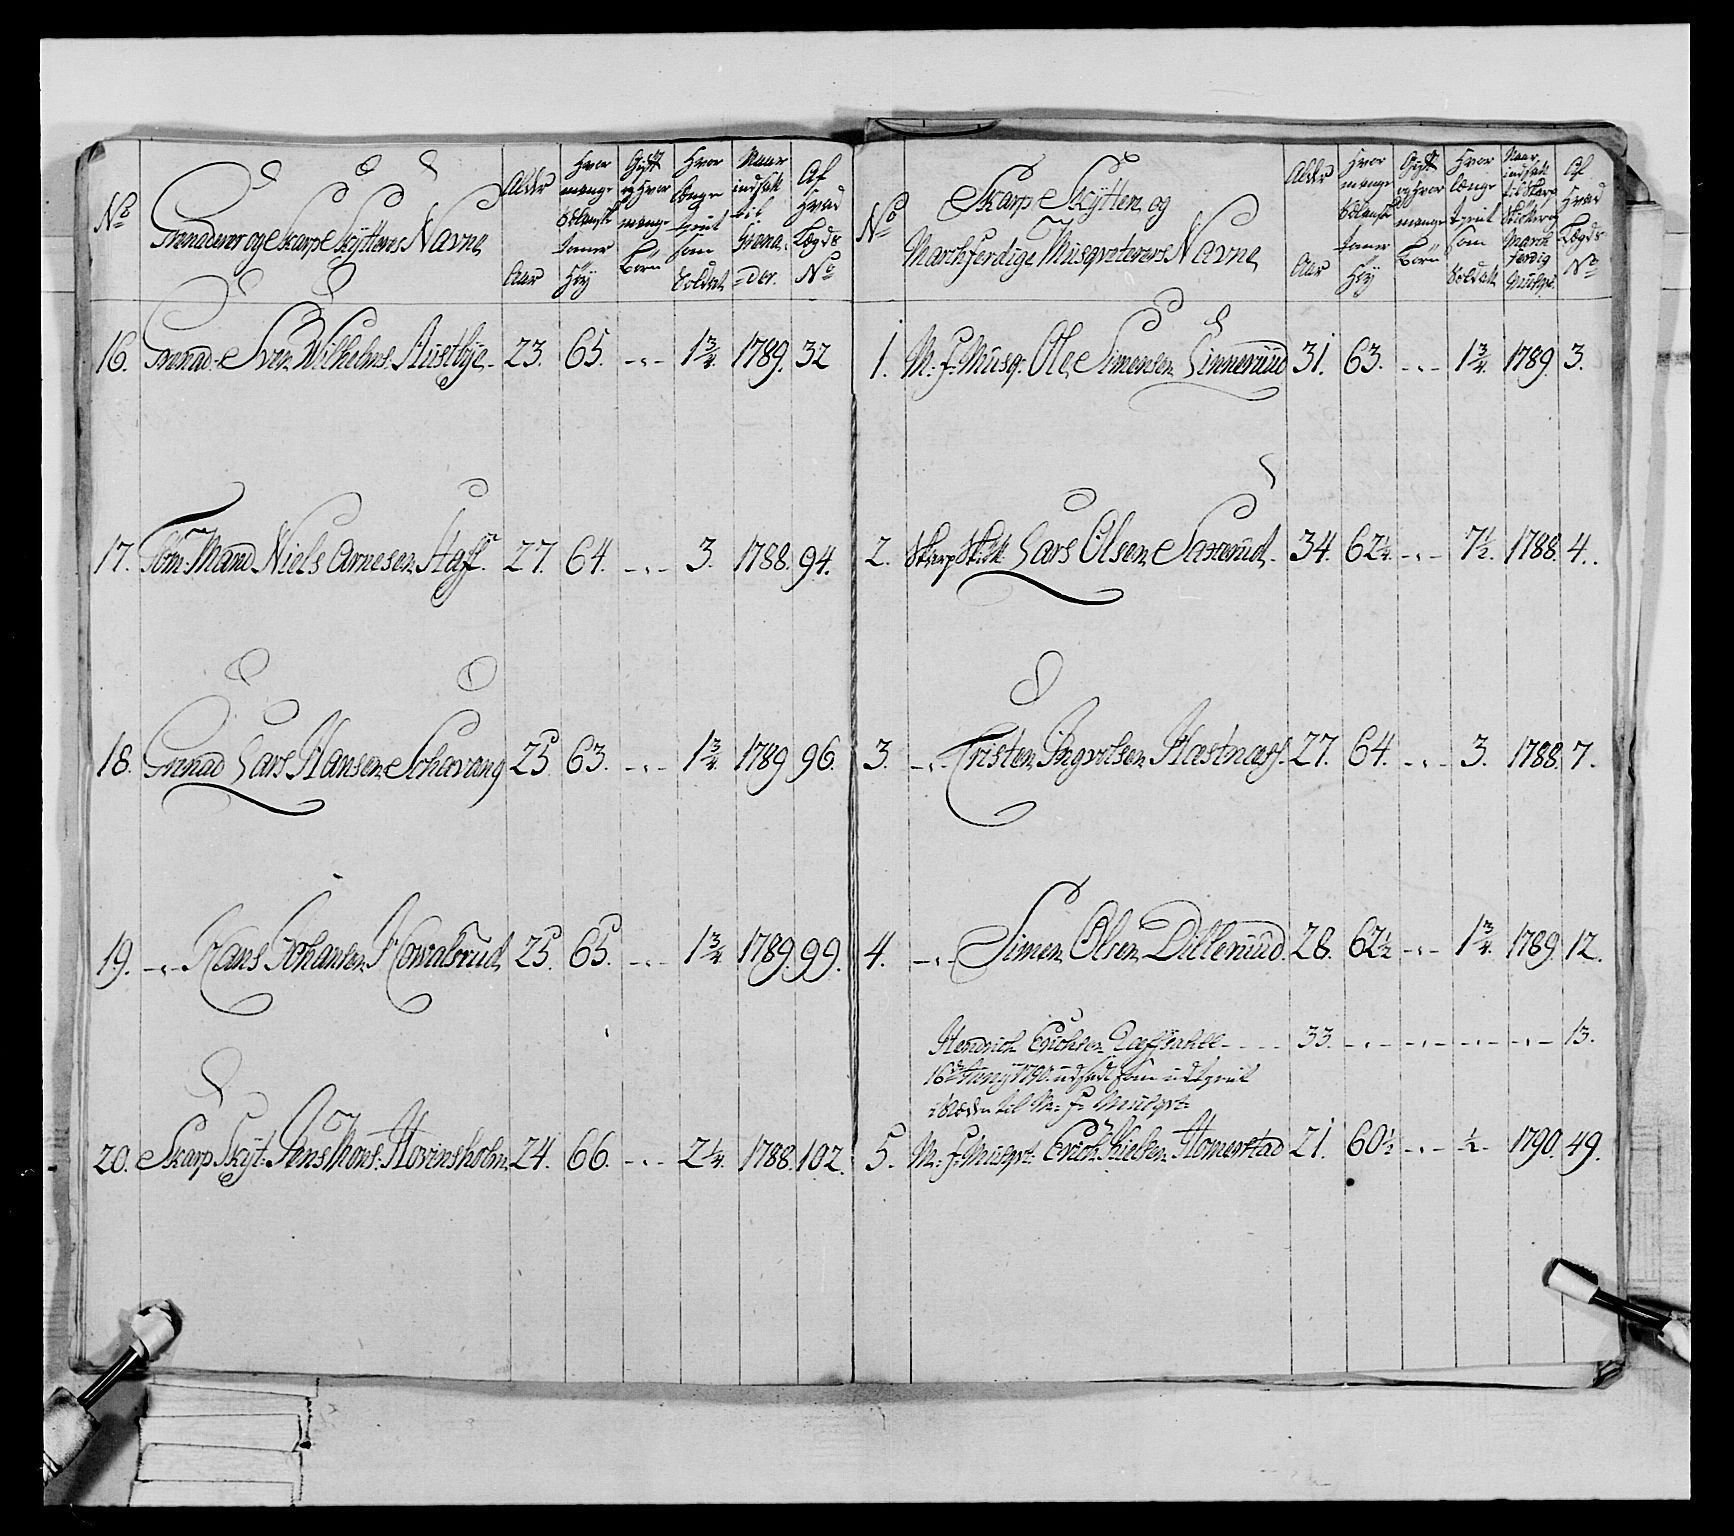 No
Grenaderer og Skarp Skytters Navne
Alder Aar
Hvor mange Siælansk tomer Høy
Gift og Hvor mange Børn
Hvor længe tient som Soldat
Naar indsatt til Grena=der.
Af Hvad Lægds No
16. Grenad. Sven Wilhelms. Austbye 23. 65. -„- 1 3/4. 1789. 32
17. Tom: Mand Niels Arnesen Haff. 27. 64. -„- 3. 1788. 94.
18. Grenad Lars Hansen Scharang 25 63. -„- 1 3/4. 1789 96.
19. -„- Hans Johansen Howalsrud 25. 65. -„- 1 3/4. 1789. 99.
20. Skarp Skyt. Jens Thors. Hovinsholm 24. 66. -„- 2 1/4. 1788. 102.
No
Skarp Skytter og
Marchferdige Musqveterers Navne
Alder Aar
Hvor mange Siælansk tomer Høy
Gift og Hvor mange Børn
Hvor længe tient som Soldat
Naar indsatt til Skarp Skytter og March ferdig Musqt.
Af Hvad Lægds No
1. M: f: Musq. Ole Simensen Linnerud 31. 63. -„- 1 3/4. 1789. 3.
2. Skarp Skÿtt. Lars Olsen Saxerud. 34. 62 1/4. -„- 7 1/2. 1788. 4.
3. -„- Cristen Ingvelsen Hastnæss. 27. 64. -„- 3. 1788. 7.
4. -„- Simen Olsen Dillerud. 28. 62 1/2 -„- 1 3/4. 1789. 12.
Hendrich Erichsen 33. -„- -„- -„- -„- 13.
16de Juny 1790. udsadt som udtient
til M: f: Musqvt:
5. M: f: Musqvt. Erich Nielsen Homerstad 21. 60 1/2 -„- 1/2. 1790. 49.